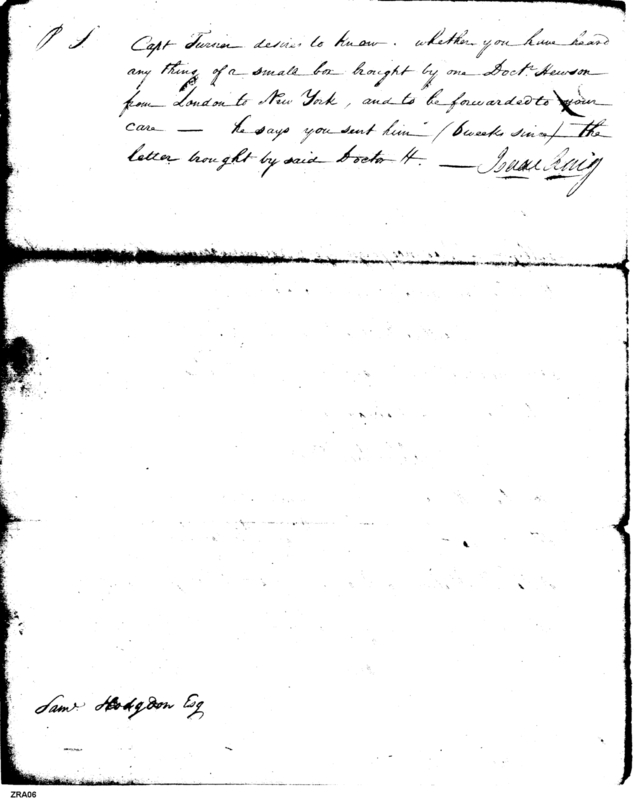 P S Capt Turner desires to know. whether you have heard
any thing of a small box brought by one Doctr Hewson
from London to New York, and to be forwarded to your
care — he says you sent him (6 weeks since) the
letter brought by said Doctor H. — Isaac Craig
Saml Hodgdon Esq
ZRA06